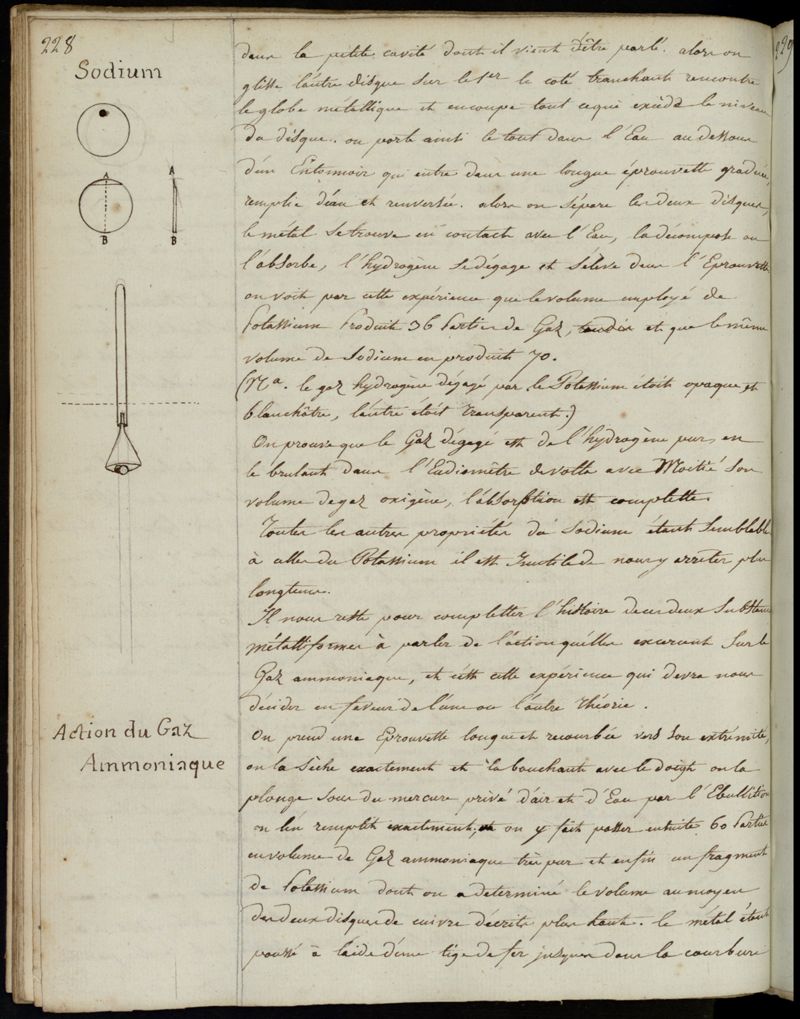 228
Sodium
A
B
A
B
Action du Gaz
Ammoniaque
dans la petite cavité dont il vient d'être parlé. alors on
glisse l'autre disque sur le 1er le coté tranchant rencontre
le globe métallique et en coupe tout ce qui excède le niveau
du disque. on porte ainsi le tout dans l'Eau au dessous
d'un Entonnoir qui entre dans une longue éprouvette graduée,
remplie d'eau et renversée. alors on sépare les deux disques,
le métal se trouve en contact avec l'Eau, la décompose ou
l'absorbe, l'hydrogène se dégage et s'élève dans l'Eprouvette
on voit par cette expérience que le volume employé de
Potassium Produit 36 Parties de Gaz, et que le même
volume de Sodium en produit 70.
(Na. le gaz hydrogène dégagé par le Potassium étoit opaque et
blanchâtre, l'autre étoit transparent.)
On prouve que le Gaz dégagé est de l'hydrogène pur, en
le brulant dans l'Eudiomètre de volta avec Moitié son
volume de gaz oxigène, l'absorption est complette.
Toutes les autres propriétés du Sodium étant semblables
à celles du Potassium il est Inutile de nous y arrêter plus
longtems.
Il nous reste pour completter l'histoire de ces deux substances
métalliformes à parler de l'action qu'elles exercent sur le
Gaz ammoniaque, et c'est cette expérience qui devra nous
décider en faveur de l'une ou l'autre théorie.
On prend une Eprouvette longue et recourbée vers son extrémité,
on la sèche exactement et la bouchant avec le doigt on la
plonge sous du mercure privé d'air et d'Eau par l'Ebullition
on l'en remplit exactement, on y fait passer ensuite 60 Parties
en volume de Gaz ammoniaque très pur et enfin un fragment
de Potassium dont on a determiné le volume au moyen
des deux disques de cuivre décrits plus haut. le métal étant
poussé à l'aide d'une tige de fer jusques dans la courbure